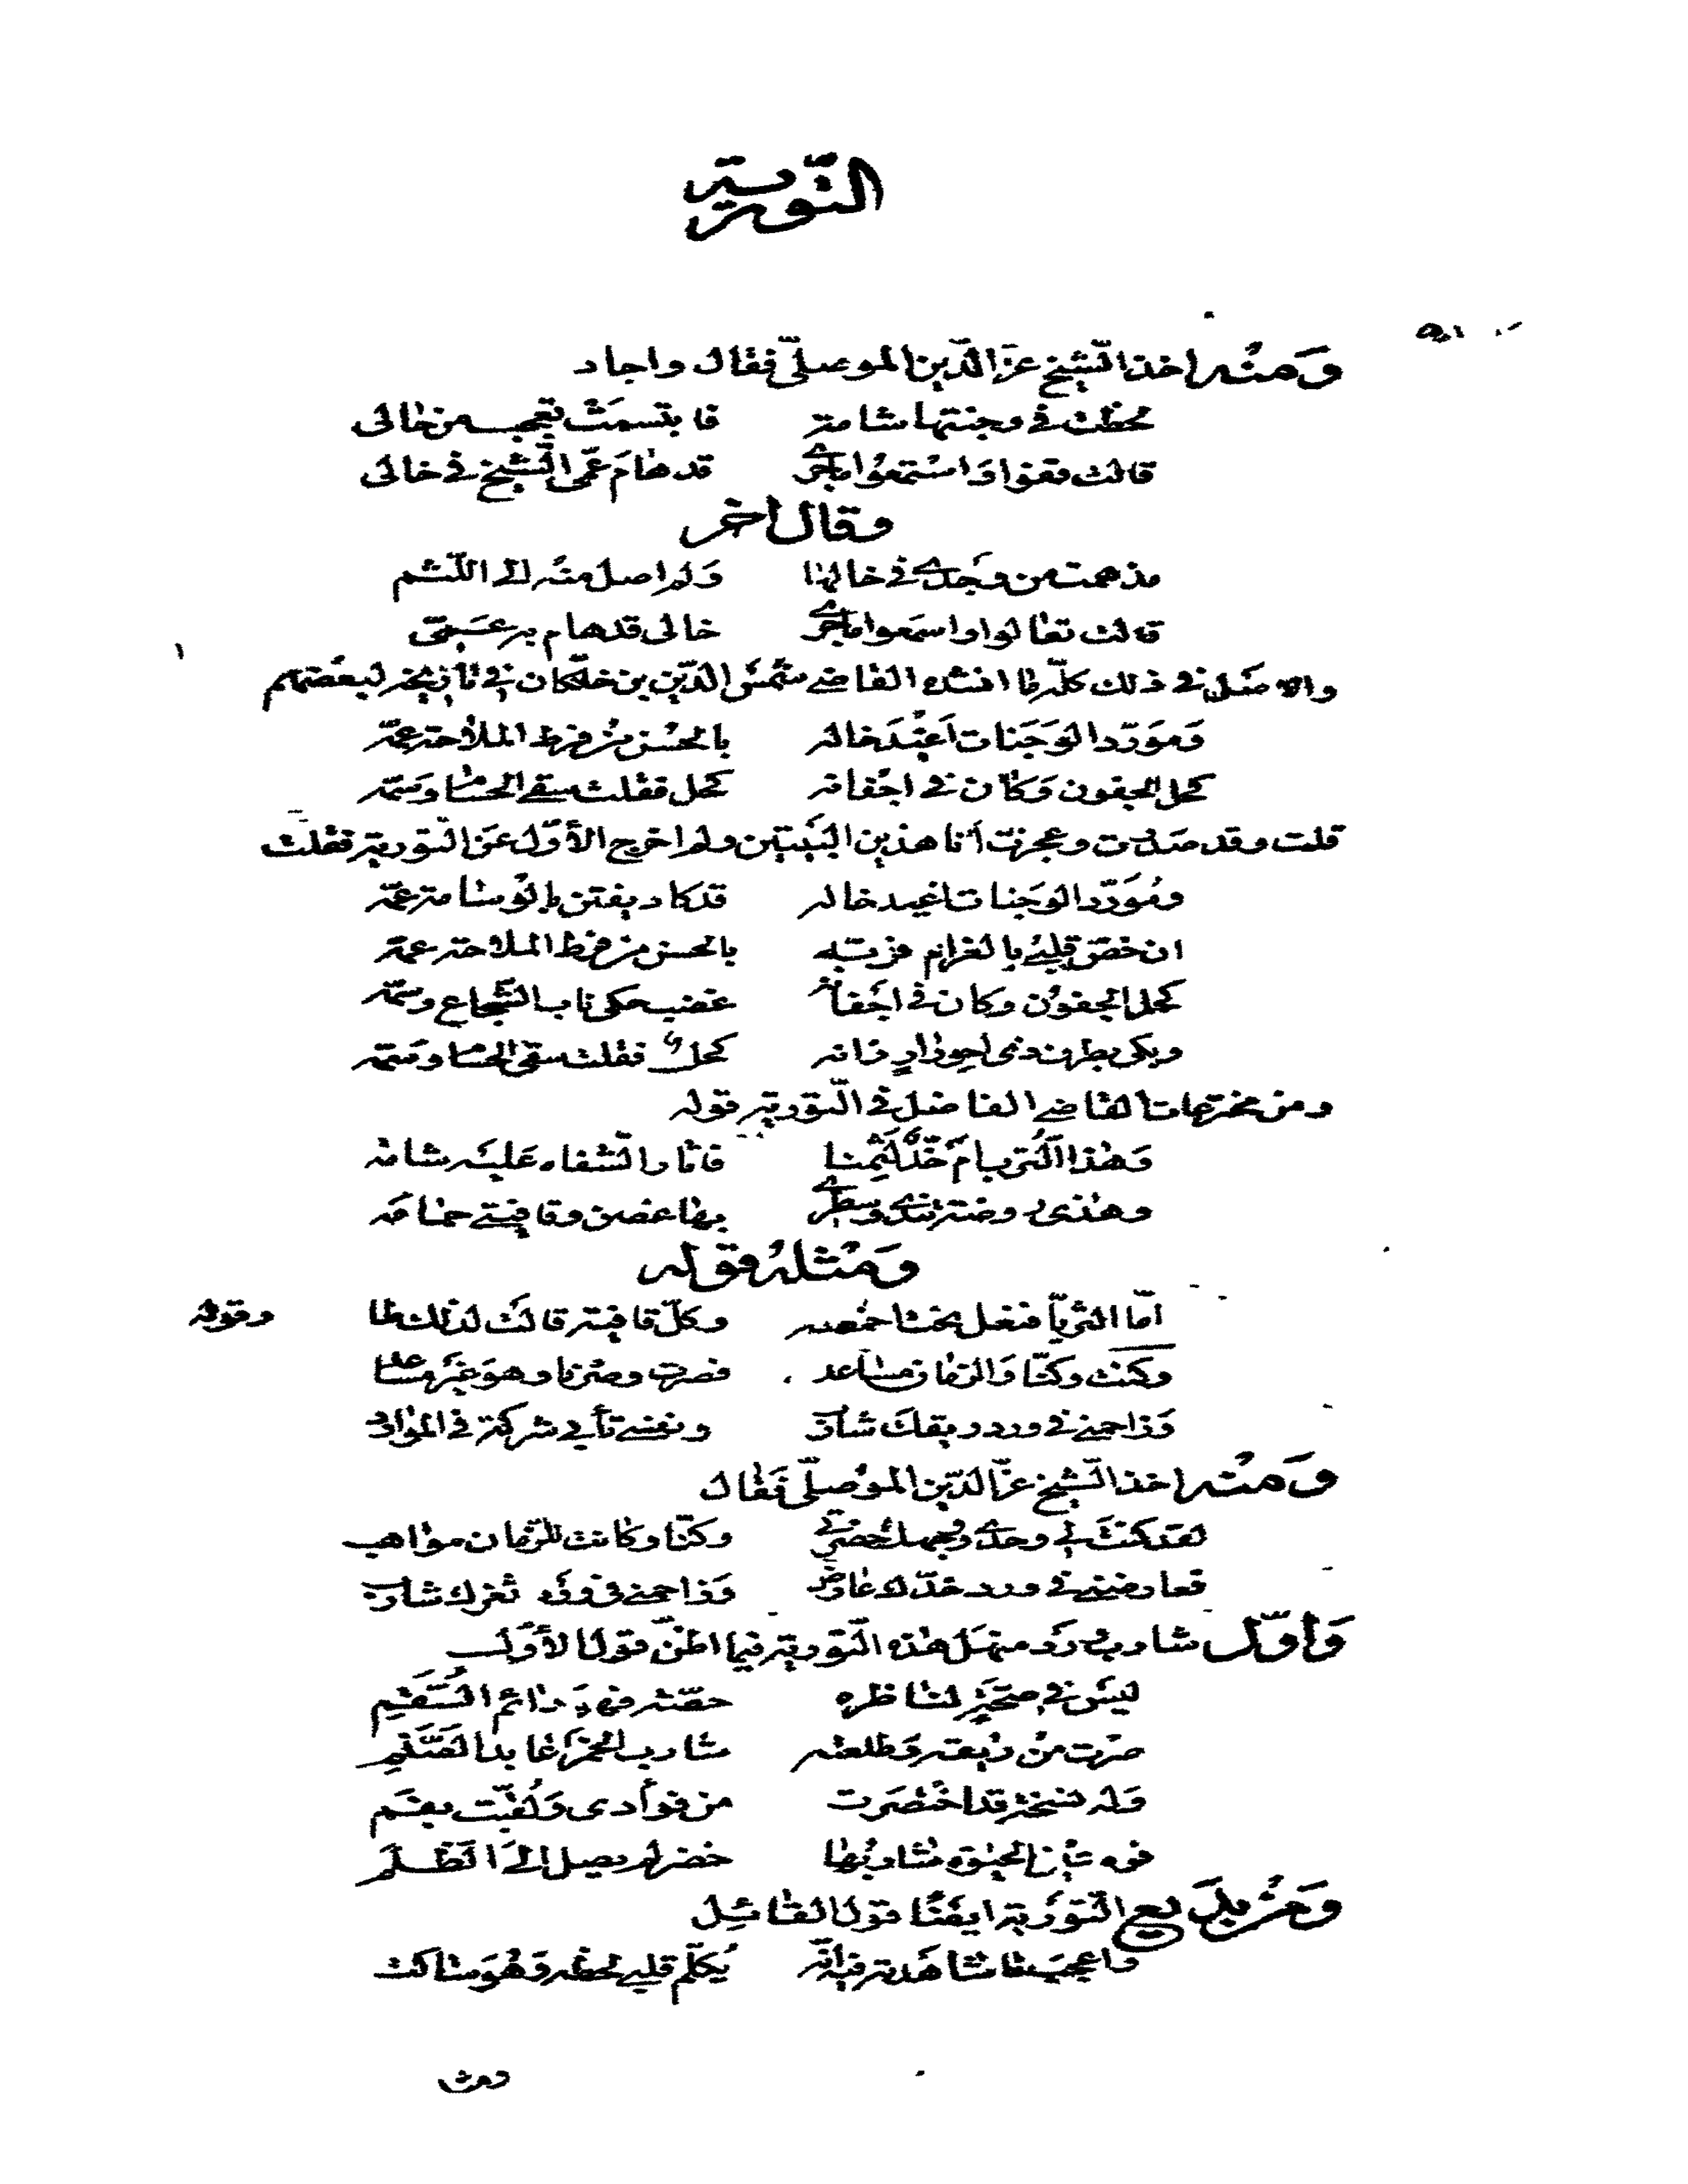 التورية
ومنه اخذ الشيخ عز الدين الموصلي فقال واجاد
لحظت في وجنتها شامة فابتسمت تعجب من حالى
قالت قفوا واستمعوا ماجرى قد هام عمى الشيخ في خالى
وقال آخر
مذ همت من وجدى في خالها ولم اصل منه الى اللثم
قالت تعالوا واسمعوا ماجرى خالى قد هام به عمى
والاصل في ذلك كله ما انشده القاضى شمس الدين بن خلكان في تاريخه لبعضهم
ومورد الوجنات اغيد خاله بالحسن من فرط الملاحة عمه
كحل الجفون وكان في اجفانه كحل فقلت سقى الحسام وسمه
قلت وقد صدرت وعجزت أنا هذين البيتين ولم اخرج الأول عن التورية فقلت
ومورد الوجنات اغيد خاله قد كاد يفتن بالوسامة عمه
ان خص قلبى بالغرام فربته بالحسن من فرط الملاحة عمه
كحل الجفون وكان في اجفانه غضب حكى ناب الشجاع وسمه
كحل فقلت سقى الحسام وسمه
ومن مخترعات القاضى الفاضل في التورية قوله
وهذا خد لثمنا فاثار الشفاه عليه شامه
وهذى روضة تندى وسطرى بها غصن وقافيتى حمامه
ومثله قوله
اما الثريا فنعل تحت اخمصه وكل قافية قالت لذلك طا
وقوله
وكنت وكنا والزمان مساعد فصرت وصرنا وهو غير مساعد
وزاحمنى في ورد ريقك شارب ونفسى تأبى شركة في الموارد
ومنه اخذ الشيخ عز الدين الموصلى فقال
لقد كنت لى وحدى ووجهك حضرتى وكنا وكانت للزمان مواهب
فعارضنى في ورد خدك عارض وزاحمنى في ورد ثغرك شارب
واول شارب ورد منهل هذه التورية فيما اظن قول الأول
ليس في صحة لناظره حصة فهو دائم السقم
صرت من ريقه وطلعته شارب الخمر عابد الصنم
وله نسخة قد اختصرت من فؤادى ولقبت بفم
فوه عين الحيوة شاربها خضر لم يصل الى الظلم
ومن بديع التورية ايضا قول القائل
واعجب ما شاهدته فيه انه يكلم قلبى لحظه وهو ساكت
ومنه